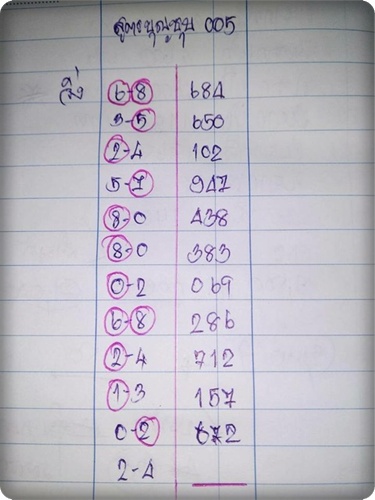 สูตรบุญชุบ 005
วิ่ง 6-8 684
3-5 650
2-4 102
5-7 947
8-0 438
8-0 383
0-2 069
6-8 286
2-4 712
1-3 157
0-2 672
2-4